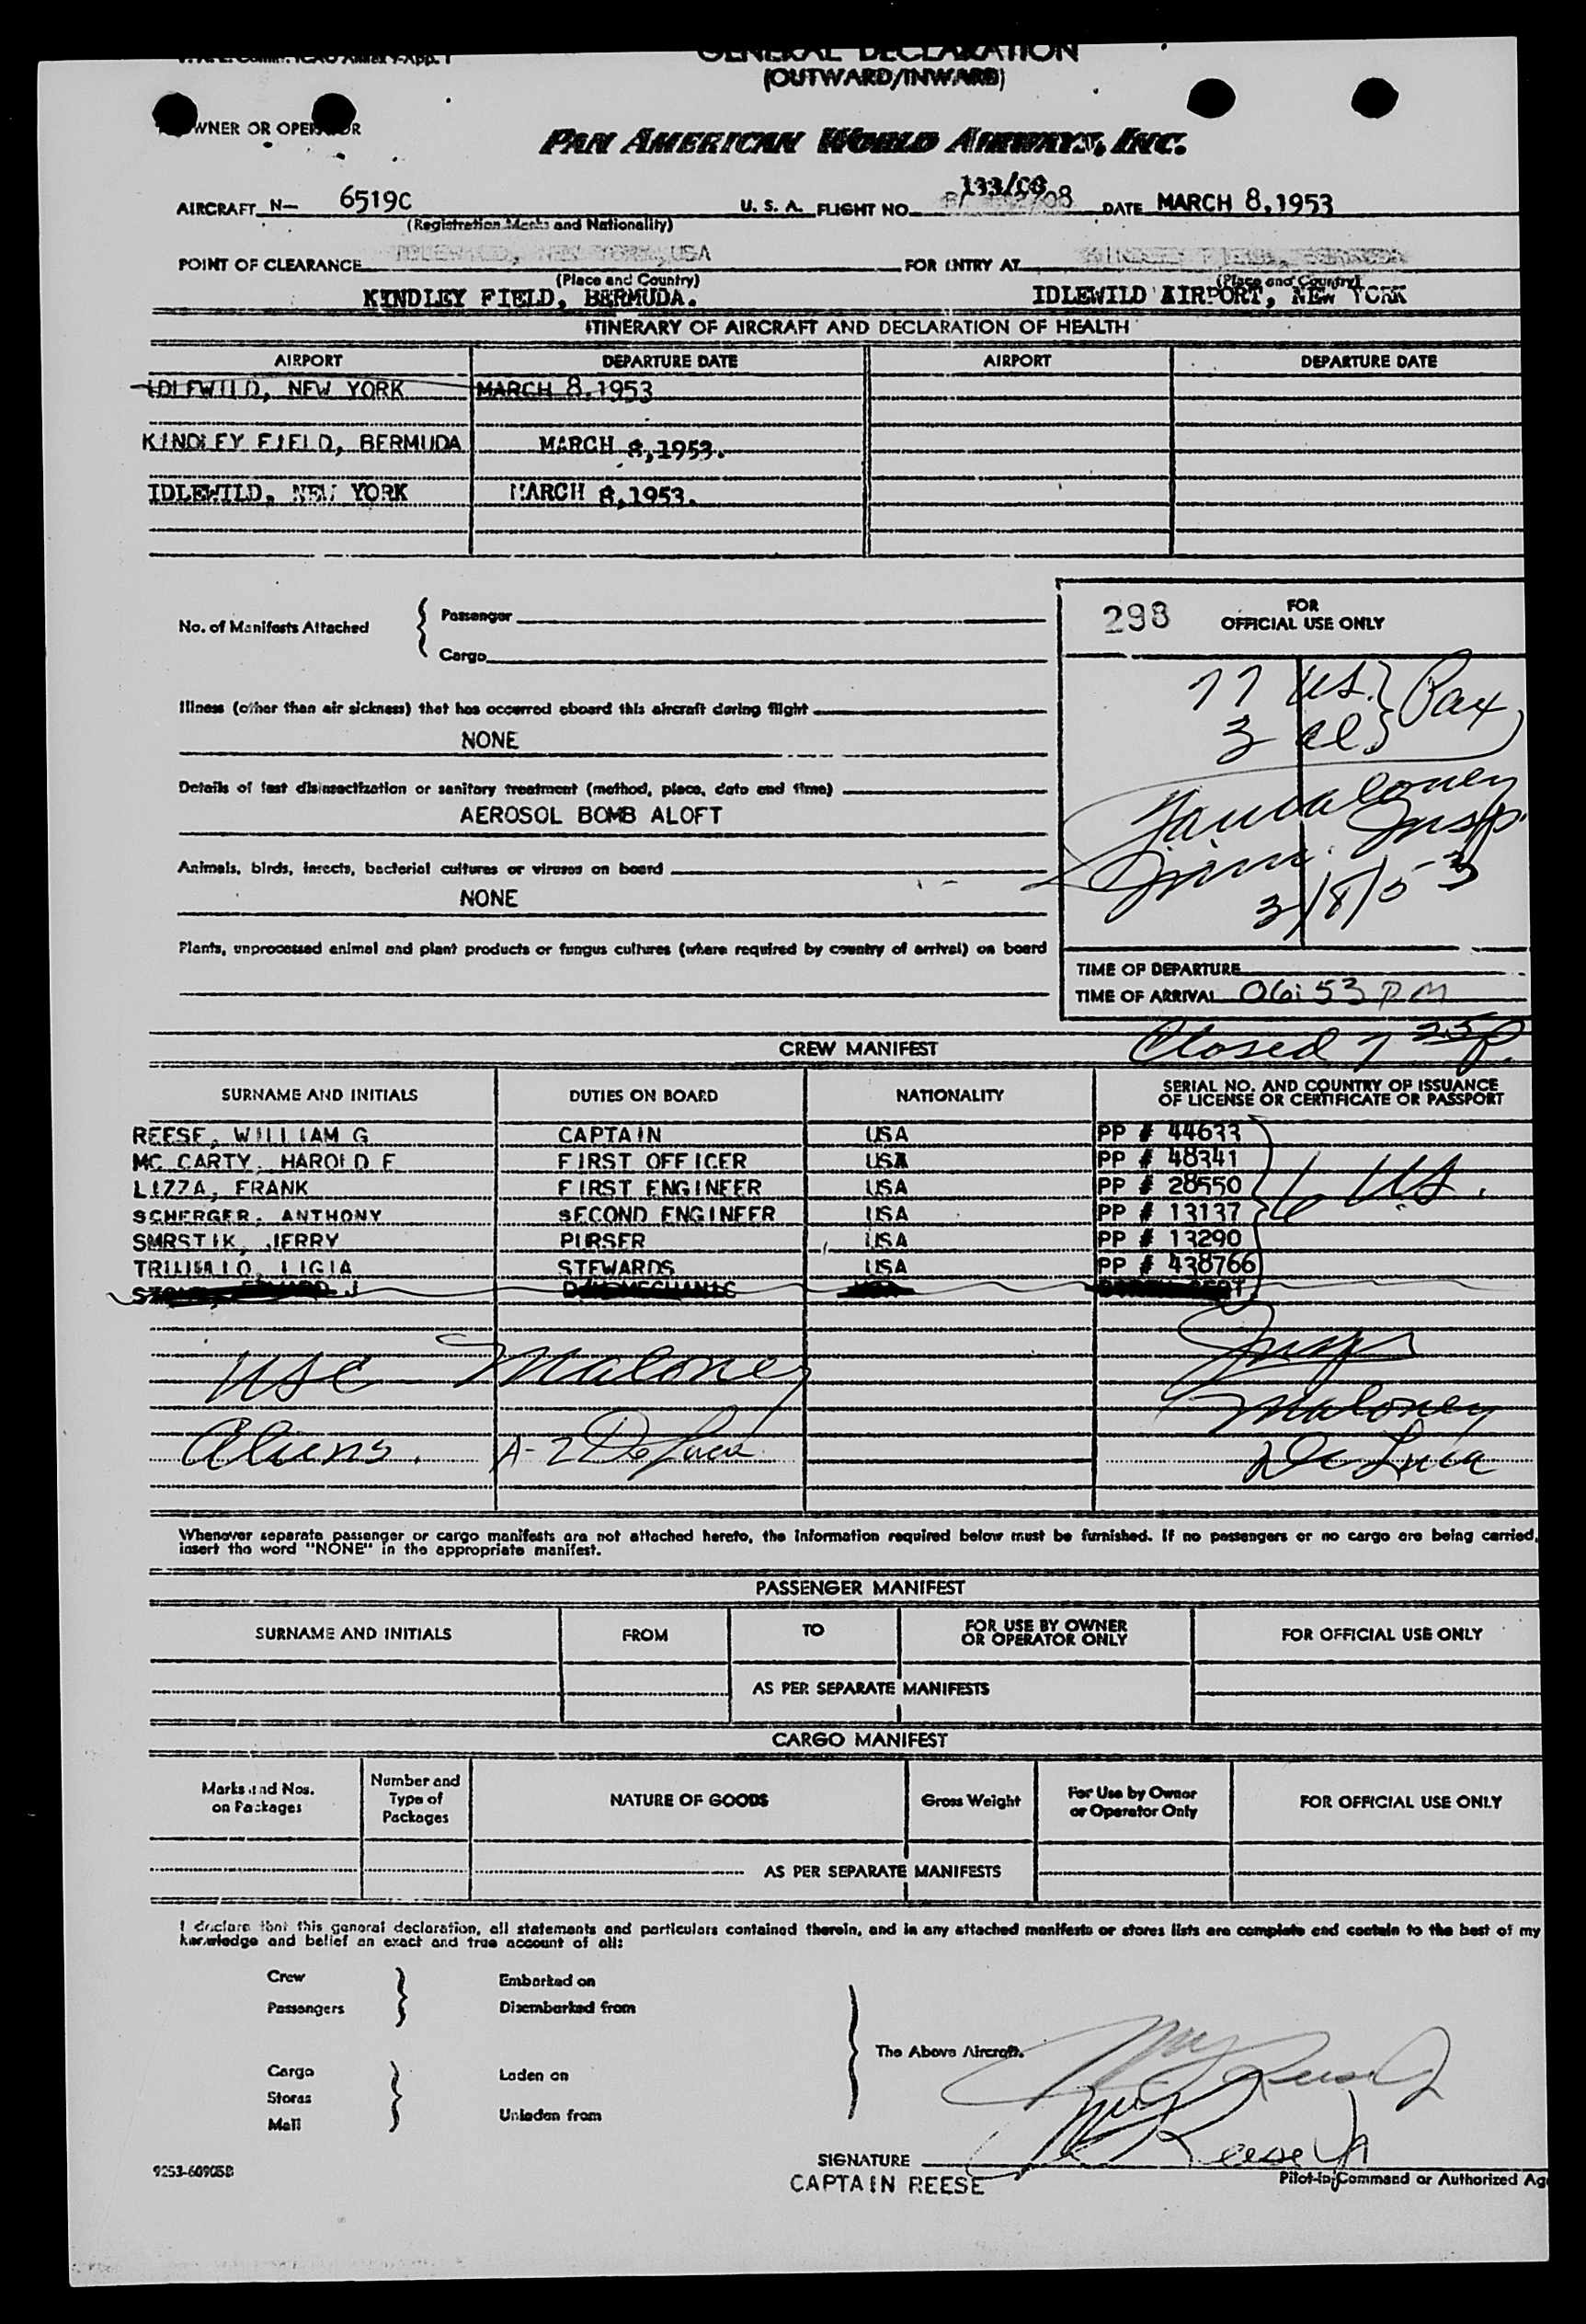 GENERAL DECLARATION
(OUTWARD/INWARD)
OWNER OR OPERATOR
PAN AMERICAN WORLD AIRWAYS, INC.
AIRCRAFT N- 6519C U. S. A. FLIGHT NO. 133/08 DATE MARCH 8,1953
(Registration Marks and Nationality)
POINT OF CLEARANCE IDLEWILD, NEW YORK,USA FOR ENTRY AT KINDLEY FIELD, BERMUDA
(Place and Country) (Place and Country)
KINDLEY FIELD, BERMUDA. IDLEWILD AIRPORT, NEW YORK
ITINERARY OF AIRCRAFT AND DECLARATION OF HEALTH
AIRPORT DEPARTURE DATE AIRPORT DEPARTURE DATE
IDLEWILD, NEW YORK MARCH 8,1953
KINDLEY FIELD, BERMUDA MARCH 8,1953.
IDLEWILD, NEW YORK MARCH 8,1953.
No. of Manifests Attached { Passenger
Cargo
298 FOR
OFFICIAL USE ONLY
77 US. } Pax
3 al
Maloney
Insp.
Imm.
3/8/53
Illness (other than air sickness) that has occurred aboard this aircraft during flight
NONE
Details of last disinsectization or sanitary treatment (method, place, date and time)
AEROSOL BOMB ALOFT
Animals, birds, insects, bacterial cultures or viruses on board
NONE
Plants, unprocessed animal and plant products or fungus cultures (where required by country of arrival) on board
TIME OF DEPARTURE
TIME OF ARRIVAL 06:53 PM
Closed 7 25 p.
CREW MANIFEST
SURNAME AND INITIALS DUTIES ON BOARD NATIONALITY SERIAL NO. AND COUNTRY OF ISSUANCE
OF LICENSE OR CERTIFICATE OR PASSPORT
REESE, WILLIAM G CAPTAIN USA PP # 44633
MC CARTY, HAROLD F FIRST OFFICER USA PP # 48341
LIZZA, FRANK FIRST ENGINEER USA PP # 28550
SCHERGER, ANTHONY SECOND ENGINEER USA PP # 13137
SMRSTIK, JERRY PURSER USA PP # 13290
TRUJILLO, LIGIA STEWARDS USA PP # 438766
6 US.
USC Maloney Insp
Maloney
Aliens. A-2 DeLuca DeLuca
Whenever separate passenger or cargo manifests are not attached hereto, the information required below must be furnished. If no passengers or no cargo are being carried,
insert the word "NONE" in the appropriate manifest.
PASSENGER MANIFEST
SURNAME AND INITIALS FROM TO FOR USE BY OWNER
OR OPERATOR ONLY FOR OFFICIAL USE ONLY
AS PER SEPARATE MANIFESTS
CARGO MANIFEST
Marks and Nos.
on Packages Number and
Type of
Packages NATURE OF GOODS Gross Weight For Use by Owner
or Operator Only FOR OFFICIAL USE ONLY
AS PER SEPARATE MANIFESTS
I declare that this general declaration, all statements and particulars contained therein, and in any attached manifests or stores lists are complete and contain to the best of my
knowledge and belief an exact and true account of all:
Crew
Passengers } Embarked on
Disembarked from
The Above Aircraft.
Cargo
Stores
Mail } Laden on
Unladen from
SIGNATURE Wm G Reese Jr
CAPTAIN REESE Pilot-in-Command or Authorized Ag
9253-60905B